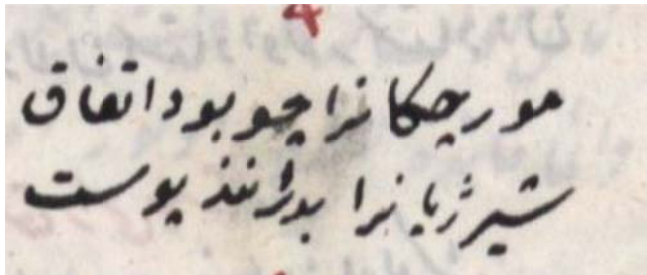 مورچکانرا چو بود اتفاق
شیر ژیانرا بدرانند پوست